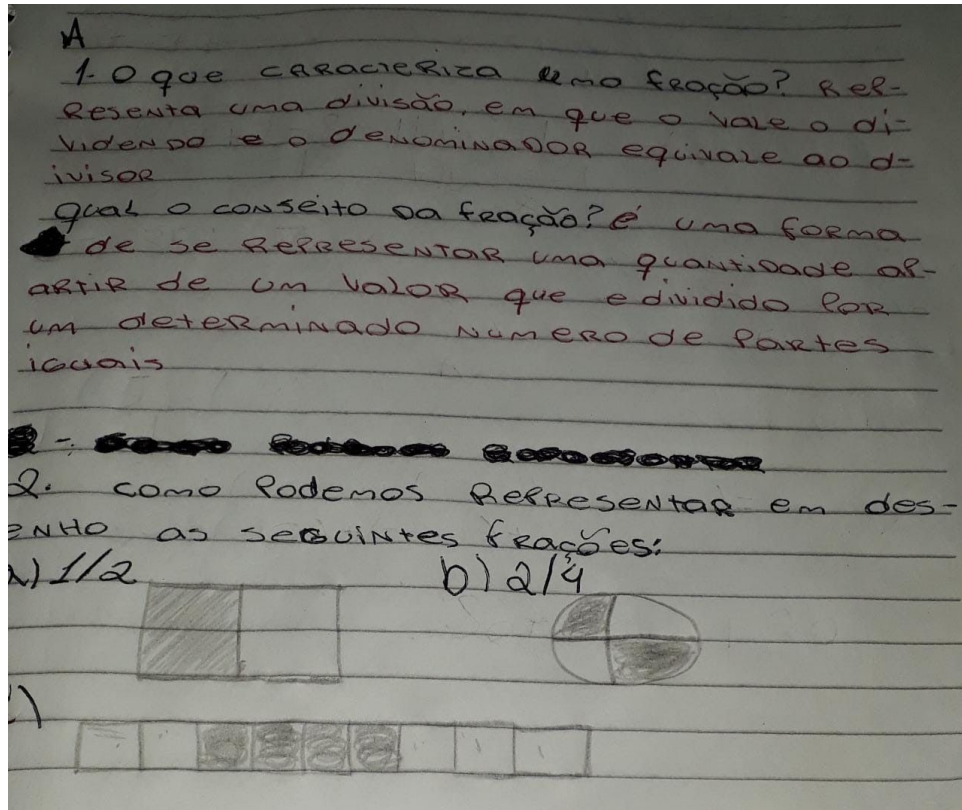 A
1. O que caracteriza uma fração? Rep-
resenta uma divisão, em que o vale o di-
videndo e o denominador equivale ao d-
ivisor
qual o conseito da fração? é uma forma
de se representar uma quantidade ap-
artir de um valor que e dividido por
um determinado numero de partes
iguais
2. como podemos representar em des-
enho as seguintes frações:
a) 1/2 b) 2/4